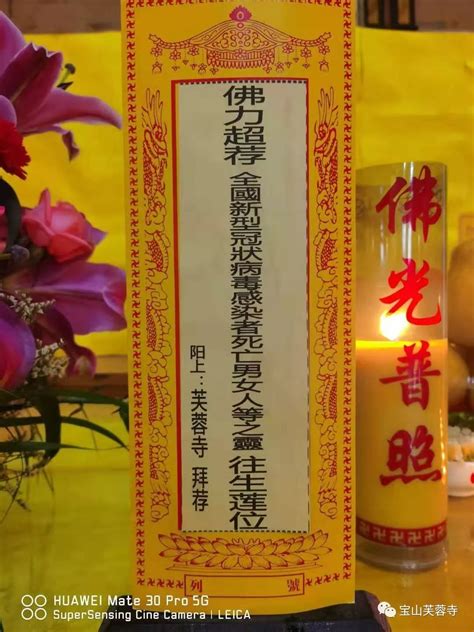 佛力超荐 全國新型冠狀病毒感染者死亡男女人等之靈 往生莲位
阳上：芙蓉寺 拜荐
列 號
佛光普照
HUAWEI Mate 30 Pro 5G
SuperSensing Cine Camera | LEICA
宝山芙蓉寺